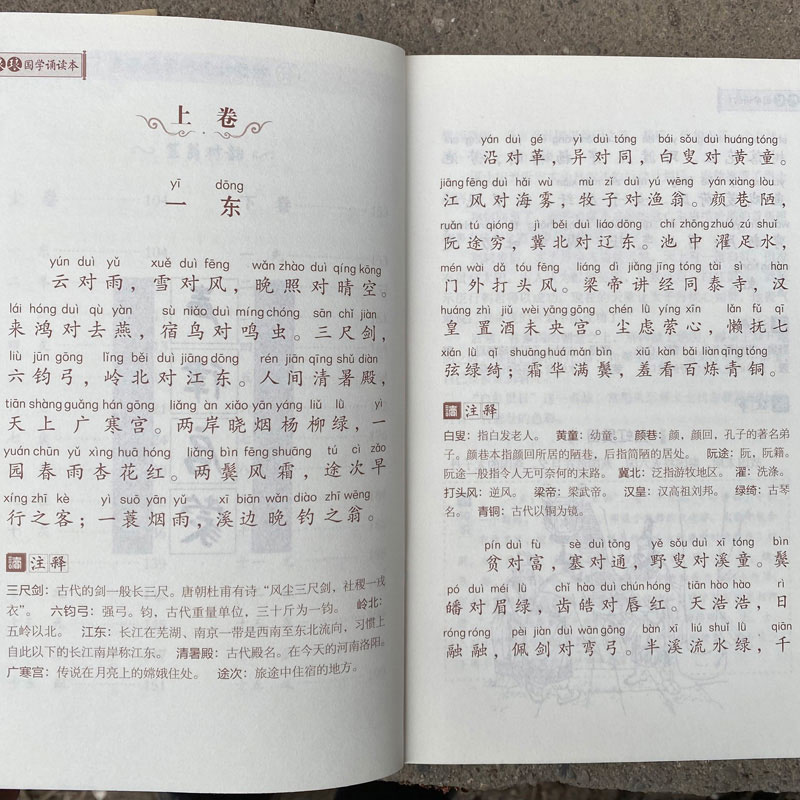 国学诵读本
上 卷
yī dōng
一 东
yún duì yǔ xuě duì fēng wǎn zhào duì qíng kōng
云对雨，雪对风，晚照对晴空。
lái hóng duì qù yàn sù niǎo duì míng chóng sān chǐ jiàn
来鸿对去燕，宿鸟对鸣虫。三尺剑，
liù jūn gōng lǐng běi duì jiāng dōng rén jiān qīng shǔ diàn
六钧弓，岭北对江东。人间清暑殿，
tiān shàng guǎng hán gōng liǎng àn xiǎo yān yáng liǔ lǜ yì
天上广寒宫。两岸晓烟杨柳绿，一
yuán chūn yǔ xìng huā hóng liǎng bìn fēng shuāng tú cì zǎo
园春雨杏花红。两鬓风霜，途次早
xíng zhī kè yì suō yān yǔ xī biān wǎn diào zhī wēng
行之客；一蓑烟雨，溪边晚钓之翁。
读 注释
三尺剑：古代的剑一般长三尺。唐朝杜甫有诗“风尘三尺剑，社稷一戎
衣”。 六钧弓：强弓。钧，古代重量单位，三十斤为一钧。 岭北：
五岭以北。 江东：长江在芜湖、南京一带是西南至东北流向，习惯上
自此以下的长江南岸称江东。 清暑殿：古代殿名。在今天的河南洛阳。
广寒宫：传说在月亮上的嫦娥住处。 途次：旅途中住宿的地方。
yán duì gé yì duì tóng bái sǒu duì huáng tóng
沿对革，异对同，白叟对黄童。
jiāng fēng duì hǎi wù mù zǐ duì yú wēng yán xiàng lòu
江风对海雾，牧子对渔翁。颜巷陋，
ruǎn tú qióng jì běi duì liáo dōng chí zhōng zhuó zú shuǐ
阮途穷，冀北对辽东。池中濯足水，
mén wài dǎ tóu fēng liáng dì jiǎng jīng tóng tài sì hàn
门外打头风。梁帝讲经同泰寺，汉
huáng zhì jiǔ wèi yāng gōng chén lǜ yíng xīn lǎn fǔ qī
皇置酒未央宫。尘虑萦心，懒抚七
xián lǜ qǐ shuāng huá mǎn bìn xiū kàn bǎi liàn qīng tóng
弦绿绮；霜华满鬓，羞看百炼青铜。
读 注释
白叟：指白发老人。 黄童：幼童。 颜巷：颜，颜回，孔子的著名弟
子。颜巷本指颜回所居的陋巷，后指简陋的居处。 阮途：阮，阮籍。
阮途一般指令人无可奈何的末路。 冀北：泛指游牧地区。 濯：洗涤。
打头风：逆风。 梁帝：梁武帝。 汉皇：汉高祖刘邦。 绿绮：古琴
名。 青铜：古代以铜为镜。
pín duì fù sè duì tōng yě sǒu duì xī tóng bìn
贫对富，塞对通，野叟对溪童。鬓
pó duì méi lǜ chǐ hào duì chún hóng tiān hào hào rì
皤对眉绿，齿皓对唇红。天浩浩，日
róng róng pèi jiàn duì wān gōng bàn xī liú shuǐ lǜ qiān
融融，佩剑对弯弓。半溪流水绿，千